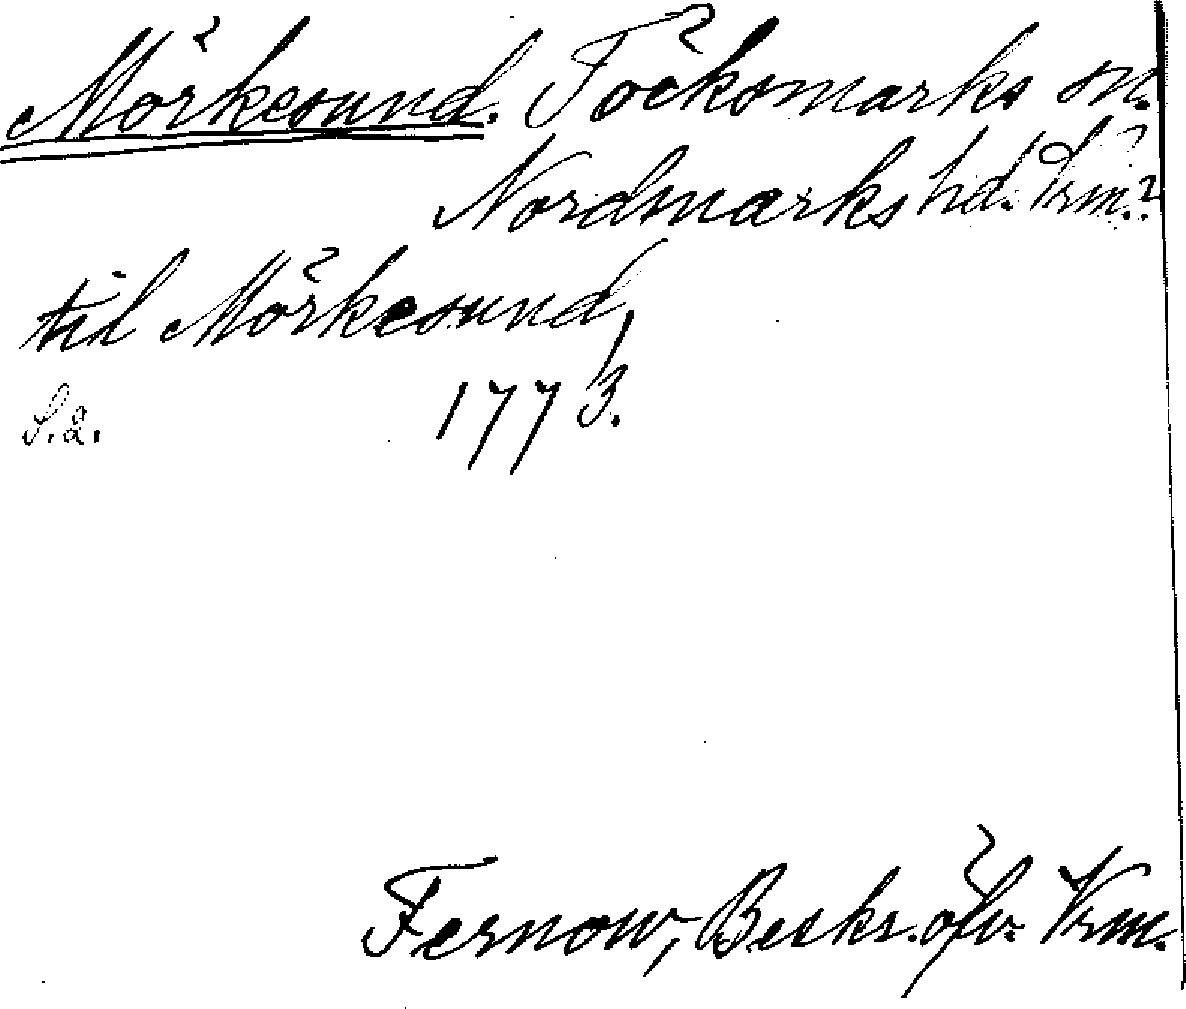 Mörkesund. Töcksmarks sn.
Nordmarks hd. Vrm.?
til Mörkesund,
S. 2. 1773.
Fernow, Beskr. öfv. Vrm.